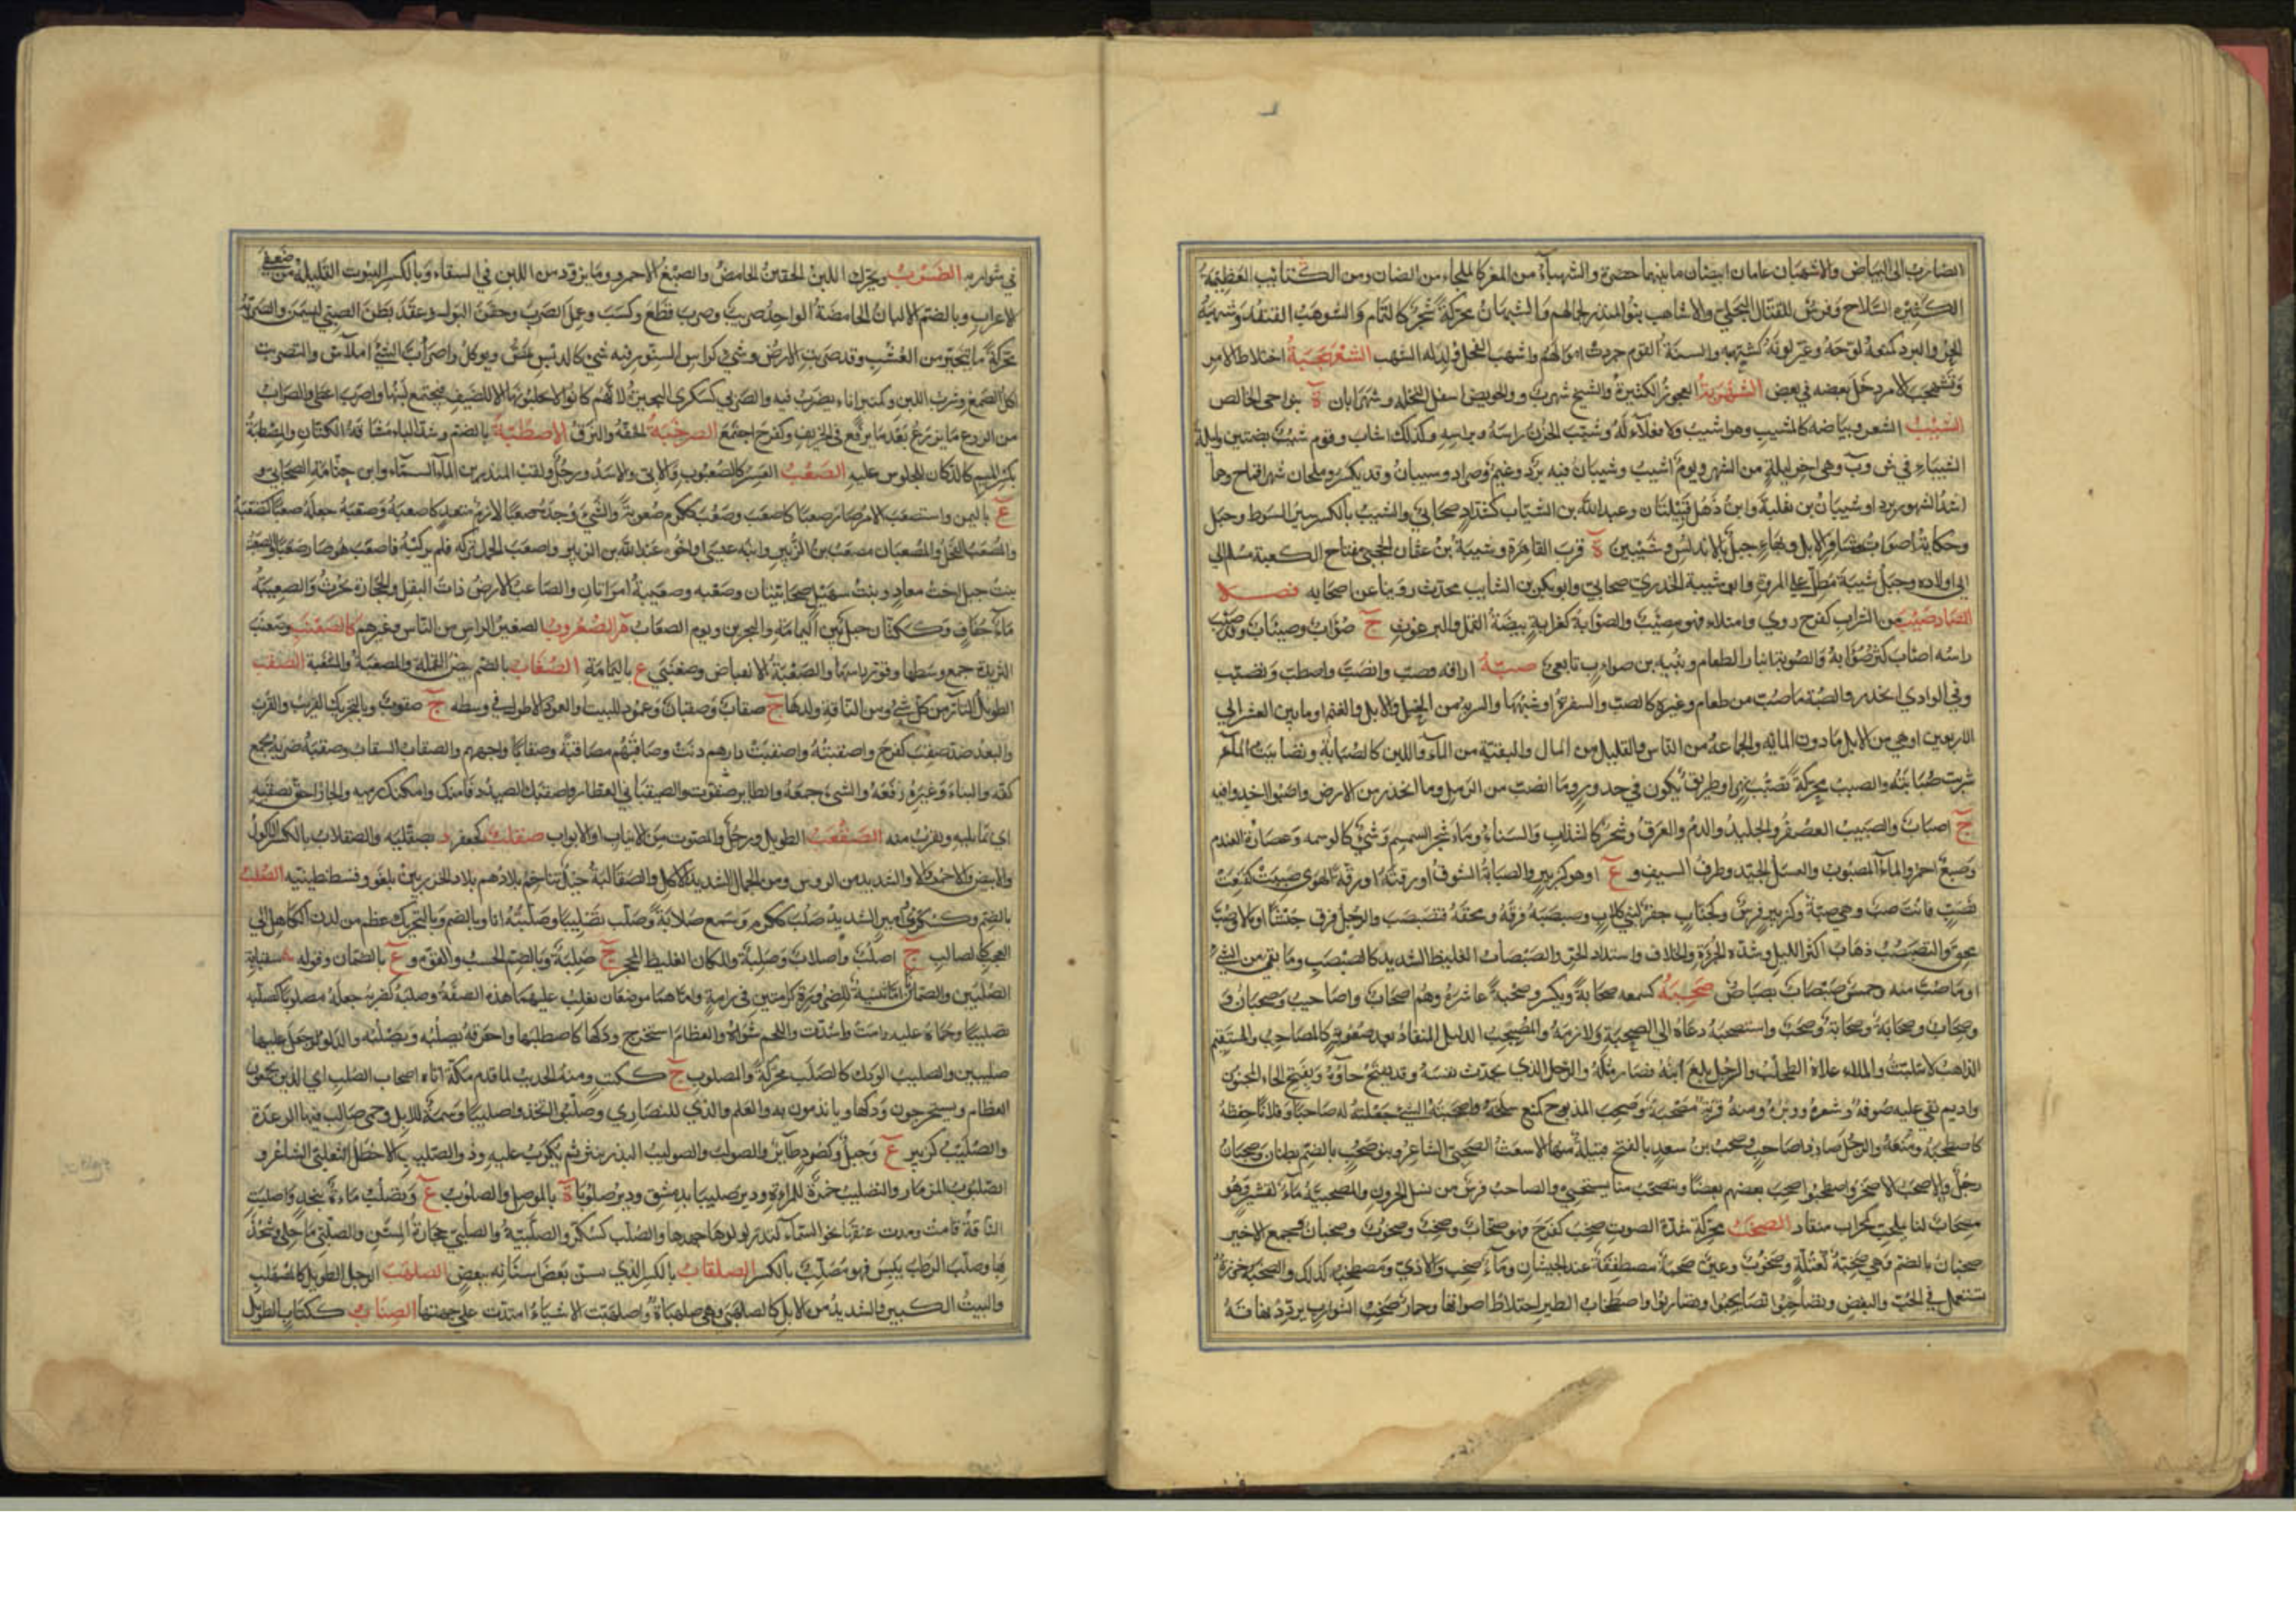 الضارب الى البياض والاشهبان عامان ابيضان ما بينهما خضرة والشهباء من المعز كالملحاء من الضان ومن الكتائب العظيمة
الكثيرة السلاح وفرس للقتال البجلي والاشاهب بنو المنذر لجمالهم والشهبان محركة شجر كالثمام والشوهب القنفذ وشهبه
الحر والبرد كمنعه لوحه وغير لونه كشهبه والسنة القوم جردت اموالهم واشهب الفحل ولد له الشهب الشهرجبة اختلاط الامر
وتشهجب الامر دخل بعضه في بعض الشهربة العجوز الكبيرة والشيخ شهرب والحويض اسفل النخلة وشهرابان ة بنواحي الخالص
الشيب الشعر وبياضه كالمشيب وهو اشيب ولا فعلاء له وشيب الحزن راسه وبراسه وكذلك اشاب وقوم شيب بضمتين وليلة
الشيباء في ش و ب وهي اخر ليلة من الشهر ويوم اشيب وشيبان فيه برد وغيم وصراد وشيبان وقد يكسر وملحان شهرا قماح وهما
اشد الشهور بردا وشيبان بن ثعلبة وابن ذهل قبيلتان وعبد الله بن الشياب كشداد صحابي والشيب بالكسر سير السوط وجبل
وحكاية اصوات مشافر الابل وبهاء جبل بالاندلس وشيبين ة قرب القاهرة وشيبة بن عثمان الحجبي مفتاح الكعبة مسلم الى
اولاده وجبل شيبة مطل على المروة وابو شيبة الخدري صحابي وابو بكر بن الشايب محدث روينا عن اصحابه فصل
الصاد صئب من الشراب كفرح روي وامتلا فهو مصئب والصؤابة كغرابة بيضة القمل والبرغوث ج صؤاب وصئبان وقد صئب
راسه اصاب كثر صؤابه والصوبة انبار الطعام ونبيه بن صواب تابعي صبه اراقه فصب وانصب واصطب وتصبب
وفي الوادي انحدر والصبة ما صب من طعام وغيره كالصب والسفرة او شبهها والسربة من الخيل والابل والغنم او ما بين العشر الى
الاربعين او هي من الابل ما دون المائة والجماعة من الناس والقليل من المال والبقية من الماء واللبن كالصبابة وتصاببت الماء
شربت صبابته والصبب محركة تصبب نهر او طريق يكون في حدور وما انصب من الرمل وما انحدر من الارض واصبوا اخذوا فيه
ج اصباب والصبيب العصفر والجليد والدم والعرق وشجر كالسذاب والسناء وماء شجر السمسم وشئ كالوسمه وعصارة العندم
وصبغ احمر والماء المصبوب والعسل الجيد وطرف السيف و ع او هو كزبير والصبابة الشوق او رقته او رقة الهوى صببت كقنعت
تصب فانت صب وهي صبة وكزبير فرس وكخباب جفر لبني كلاب وصبصبه فرقه ومحقه فتصبصب والرجل فرق جيشا او مالا وصب
محق والتصبصب ذهاب اكثر الليل وشدة الجرأة والخلاف واشتداد الحر والصبصاب الغليظ الشديد كالصبصب وما بقي من الشئ
او ما صب منه وخمس صبصاب بصباص صحبه كسمعه صحابة ويكسر وصحبة عاشره وهم اصحاب واصاحيب وصحبان و
وصحاب وصحابة وصحابة وصحب واستصحبه دعاه الى الصحبة ولازمه والمصحب الذليل المنقاد بعد صعوبة كالمصاحب والمستقيم
الذاهب لا يتلبث والماء علاه الطحلب والرجل بلغ ابنه فصار مثله والرجل الذي يحدث نفسه وقد يفتح حاؤه وبفتح الحاء المجنون
واديم بقي عليه صوفه وشعره ووبره ومنه قربة مصحبة وصحب المذبوح كمنع سلخه واصحبته الشئ جعلته له صاحبا وفلانا حفظه
كاصطحبه ومنعه والرجل صار ذا صاحب وصحب بن سعد بالفتح قبيلة منها الاشعث الصحبي الشاعر وبنو صحب بالضم بطنان وصحبان
رجل والاصحب الاصحر واصطحبوا صحب بعضهم بعضا ويتصحب منا يستحيي والصاحب فرس من نسل الحرون والمصحبية ماء لقشير وهو
مصحاب لنا بما يحب كمحراب منقاد الصخب محركة شدة الصوت صخب كفرح فهو صخاب وصخب وصخوب وصخبان وجمع الاخير
صخبان بالضم وهي صخبة كعتلة وصخوب وعين صخبة مصطفقة عند الجيشان وماء صخب الآذي ومصطخبه كذلك والصخبة خرزة
تستعمل في الحب والبغض وتصاخبوا تصايحوا وتضاربوا واصطخاب الطير اختلاط اصواتها وحمار صخب الشوارب يردد نهاقه
في شواربه الصرب ويحرك اللبن الحقين الحامض والصبغ الاحمر وما يزود من اللبن في السقاء وبالكسر البيوت القليلة من ضعفى
الاعراب وبالضم الالبان الحامضة الواحد صريب وصرب قطع وكسب وعمل الصرب وحقن البول وعقد بطن الصبي ليسمن والصربة
محركة ما يتخير من العشب وقد صربت الارض وشئ كراس السنور فيه شئ كالدبس يمص ويوكل واصرأب الشئ املاس والتصريب
اكل الصمغ وشرب اللبن وكمنبر اناء يصرب فيه والصربى كسكرى البحيرة لانهم كانوا لا يحلبونها الا للضيف فيجتمع لبنها واصرب اعطى والصراب
من الزرع ما يزرع بعد ما يرفع في الخريف وكفرح اجتمع الصرخبة الخفة والنزق الاصطبة بالضم وشد الباء مشاقة الكتان والمصطبة
بكسر الميم كالدكان للجلوس عليه الصعب العسر كالصعبوب والابي والاسد ورجل ولقب المنذر بن ماء السماء وابن جثامة الصحابي و
ع باليمن واستصعب الامر صار صعبا كاصعب وصعب ككرم صعوبة والشئ وجده صعبا لازم متعد كاصعبه وصعبه جعله صعبا كتصعبه
والمصعب الفحل والمصعبان مصعب بن الزبير وابنه عيسى او اخوه عبد الله بن الزبير واصعب الجمل تركه فلم يركبه فاصعب هو صار صعبا والصعبة
بنت جبل اخت معاذ وبنت سهيل صحابيتان وصعبه وصعيبة امراتان والصاعب الارض ذات النقل والحجارة تحرث والصعيبة
ماء لخفاف وككتان جبل بين اليمامة والبحرين ويوم الصعاب م الصعروب الصغير الراس من الناس وغيرهم كالصعنب وصعنب
الثريدة جمع وسطها وقور راسها والصعنبة الانقباض وصعنبى ع باليمامة الصغاب بالضم بيض القملة والمصغبة والمسغبة الصقب
الطويل التار من كل شئ ومن الناقة ولدها ج صقاب وصقبان وعمود للبيت او العمود الاطول في وسطه ج صقوب وبالتحريك القريب والقرب
والبعد ضد صقب كفرح واصقبته واصقبت دارهم دنت وصاقبهم مصاقبة وصقابا واجههم والصقاب السقاب وصقبه ضربه بجمع
كفه والبناء وغيره رفعه والشئ جمعه والطاير صقوت والصيقباني العطار واصقبك الصيد دنا منك وامكنك رميه والجار احق بصقبه
اي بما يليه ويقرب منه الصقعب الطويل ورجل والمصوت من الانياب او الابواب صقلب كجعفر د بصقلية والصقلاب بالكسر الاكول
والابيض والاحمر والشديد من الروس ومن الجمال الشديد الاكل والصقالبة جيل تتاخم بلادهم بلاد الخزر بين بلغر وقسطنطينية الصلب
بالضم وكسكر وامير الشديد صلب ككرم وسمع صلابة وصلب تصليبا وصلبته انا وبالضم وبالتحريك عظم من لدن الكاهل الى
العجب كالصالب ج اصلب واصلاب وصلبة والمكان الغليظ المحجر ج صلبة وبالضم الحسب والقوة و ع بالصمان وقوله سقنا به
الصلبين والصمان اما تثنية للضرورة كرامتين في رامة واما هما موضعان تغلب عليهما هذه الصفة وصلبه كضربه جعله مصلوبا كصلبه
تصليبا وحماه عليه دامت واشتدت واللحم شواه والعظام استخرج ودكها كاصطلبها واحرقه يصلبه ويصلبه والدلو جعل عليها
صليبين والصليب الودك كالصلب محركة والمصلوب ج ككتب ومنه الحديث لما قدم مكة اتاه اصحاب الصلب اي الذين يجمعون
العظام ويستخرجون ودكها وياتدمون به والعلم والذي للنصارى وصلبوا اتخذوا صليبا وسمة للابل وحمى صالب فيها الرعدة
والصليب كزبير ع وجبل وكصبور طائر والصولب والصوليب البذر ينثر ثم يكرب عليه وذو الصليب الاخطل التغلبي الشاعر و
الصلبوب المزمار والتصليب خمرة للمراة ودير صليبا بدمشق ودير صلوبا ة بالموصل والصلوب ع وتصلب ماءة بنجد واصلبت
الناقة قامت ومدت عنقها نحو السماء لتدر لولدها جهدها والصلب كسكر والصلبية والصلبي حجارة المسن والصلبي ما جلي وشحذ
بها وصلب الرطب يبس فهو مصلب بالكسر الصلقاب بالكسر الذي يسن بعض اسنانه ببعض الصلهب الرجل الطويل كالصهلب
والبيت الكبير والشديد من الابل كالصلهبى وهي صلهباة واصلهبت الاشياء امتدت على جهتها الصناب ككتاب الطويل